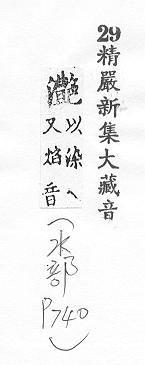 29精嚴新集大藏音
以染
又焰音
(水部
P740)